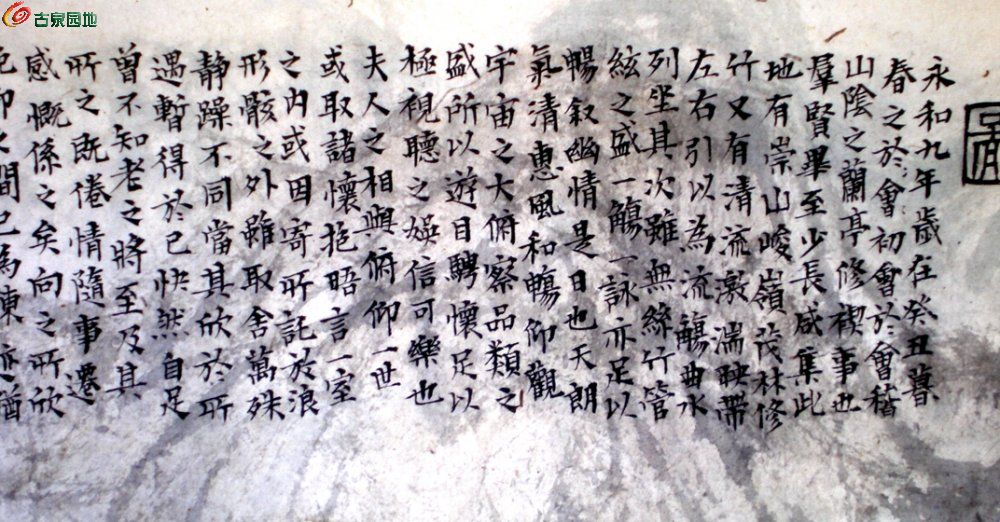 古泉园地
永和九年歲在癸丑暮
春之於會初會於會稽
山陰之蘭亭修禊事也
羣賢畢至少長咸集此
地有崇山峻嶺茂林修
竹又有清流激湍映帶
左右引以為流觴曲水
列坐其次雖無絲竹管
絃之盛一觴一詠亦足以
暢叙幽情是日也天朗
氣清惠風和暢仰觀
宇宙之大俯察品類之
盛所以遊目騁懷足以
極視聽之娛信可樂也
夫人之相與俯仰一世
或取諸懷抱晤言一室
之内或因寄所託放浪
形骸之外雖取舍萬殊
静躁不同當其欣於所
遇暫得於己快然自足
曾不知老之將至及其
所之既倦情隨事遷
感慨係之矣向之所欣
仰之間已為